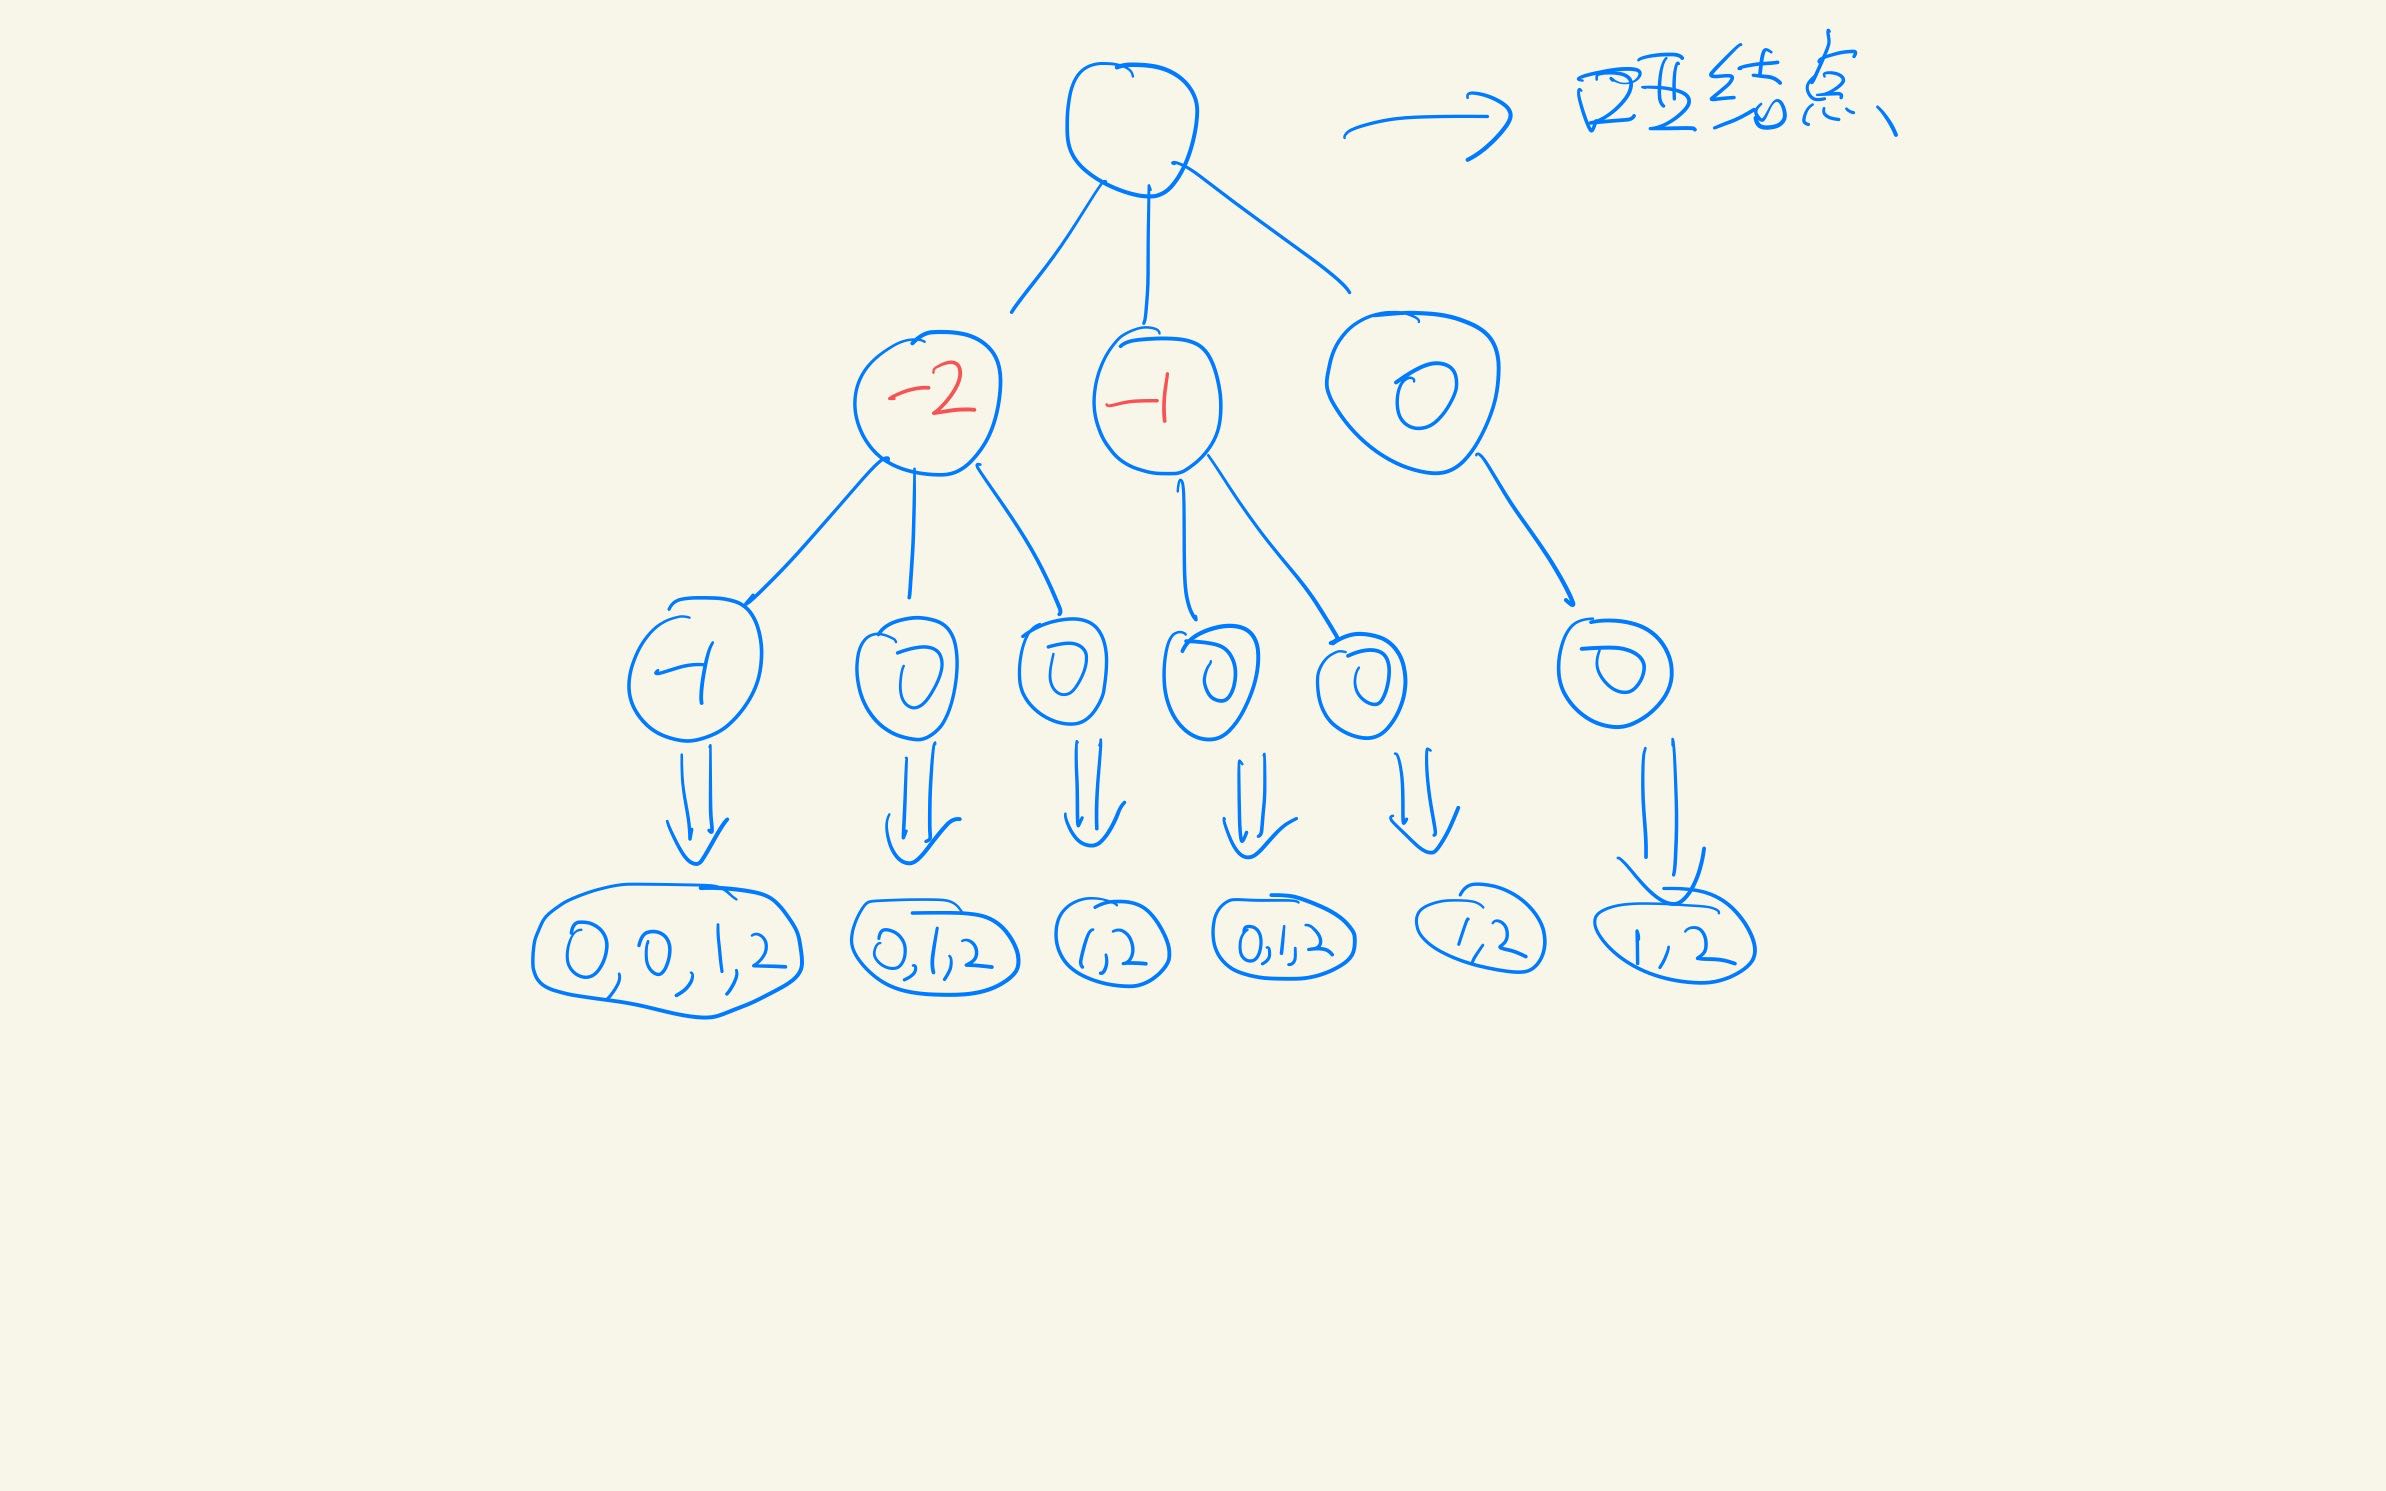 哑结点、
-2 -1 0
-1 0 0 0 0 0
0,0,1,2 0,1,2 1,2 0,1,2 1,2 1,2